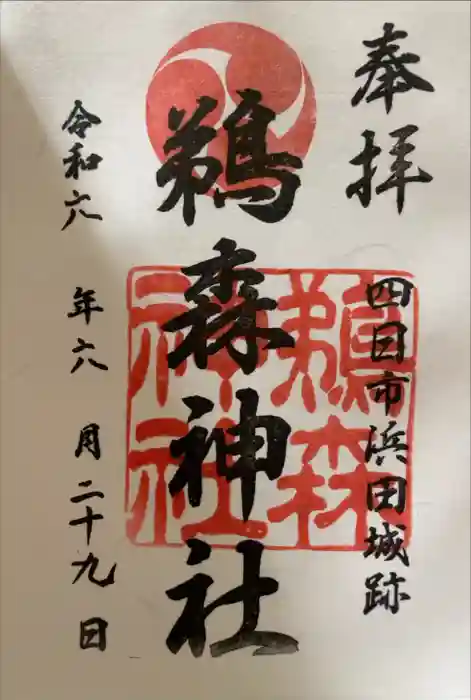 奉拝
四日市浜田城跡
鵜森神社
鵜森神社
令和六年六月二十九日